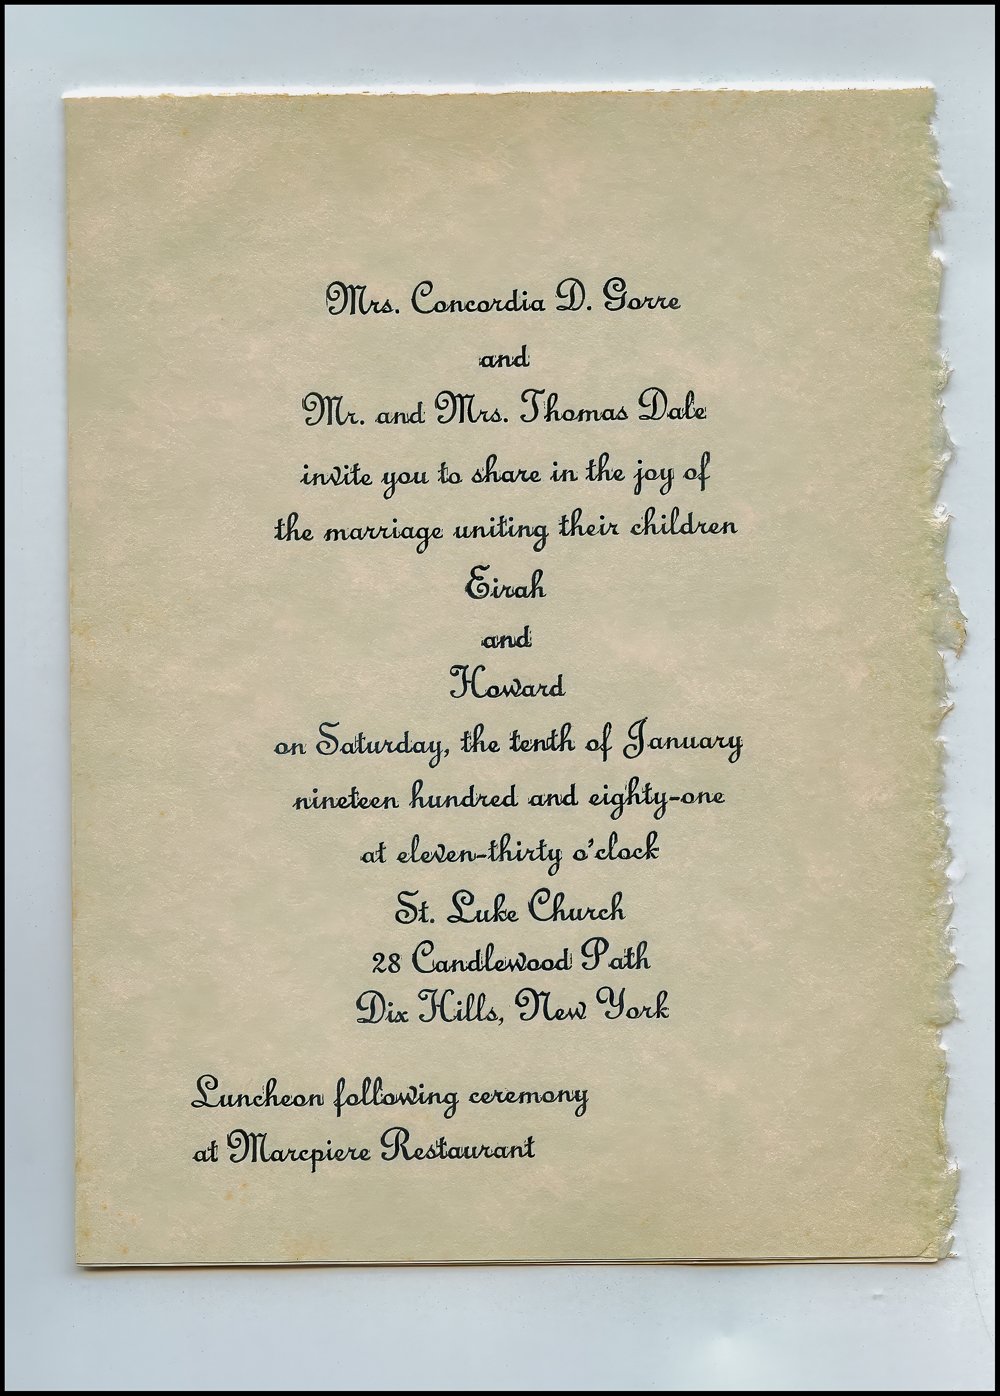 Mrs. Concordia D. Gorre
and
Mr. and Mrs. Thomas Dale
invite you to share in the joy of
the marriage uniting their children
Eirah
and
Howard
on Saturday, the tenth of January
nineteen hundred and eighty-one
at eleven-thirty o'clock
St. Luke Church
28 Candlewood Path
Dix Hills, New York
Luncheon following ceremony
at Marcpiere Restaurant